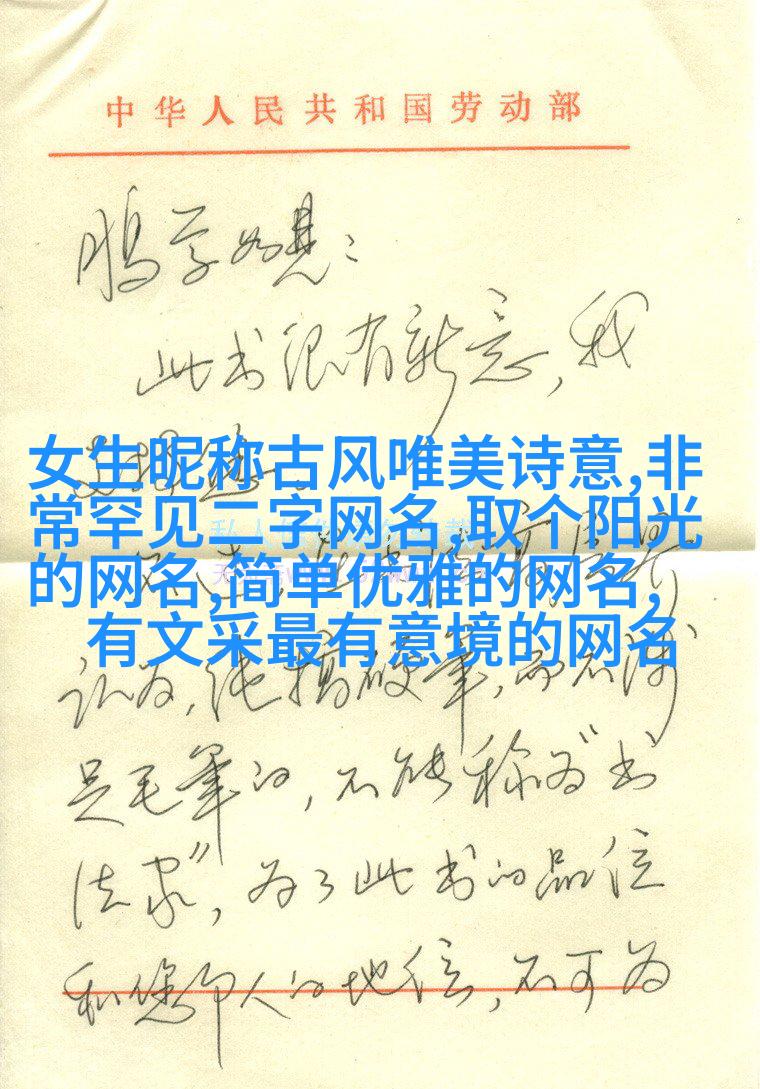 中华人民共和国劳动部
此书很有新意,我
女生昵称古风唯美诗意,非
常罕见二字网名,取个阳光
的网名,简单优雅的网名,
有文采最有意境的网名
认为,纯搞硬笔,而不涉
足毛笔的,不能称为"书
法家",为了此书的品位
和您人的地位,不可为